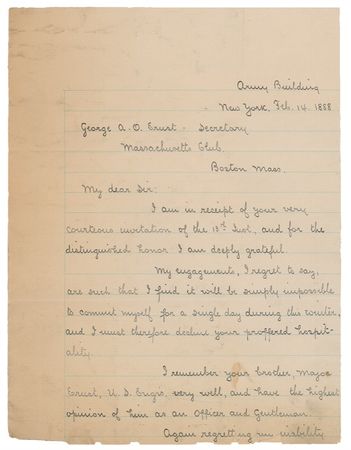 Army Building
New York, Feb. 14. 1888
George A. O. Ernst - Secretary
Massachusetts Club.
Boston Mass.
My dear Sir:
I am in receipt of your very
courteous invitation of the 13th Inst, and for the
distinguished honor I am deeply grateful.
My engagements, I regret to say,
are such that I find it will be simply impossible
to commit myself for a single day during this winter,
and I must therefore decline your proffered hospit-
ality.
I remember your brother, Major
Ernst, U. S. Engrs, very well, and have the highest
opinion of him as an Officer and Gentleman.
Again regretting my inability